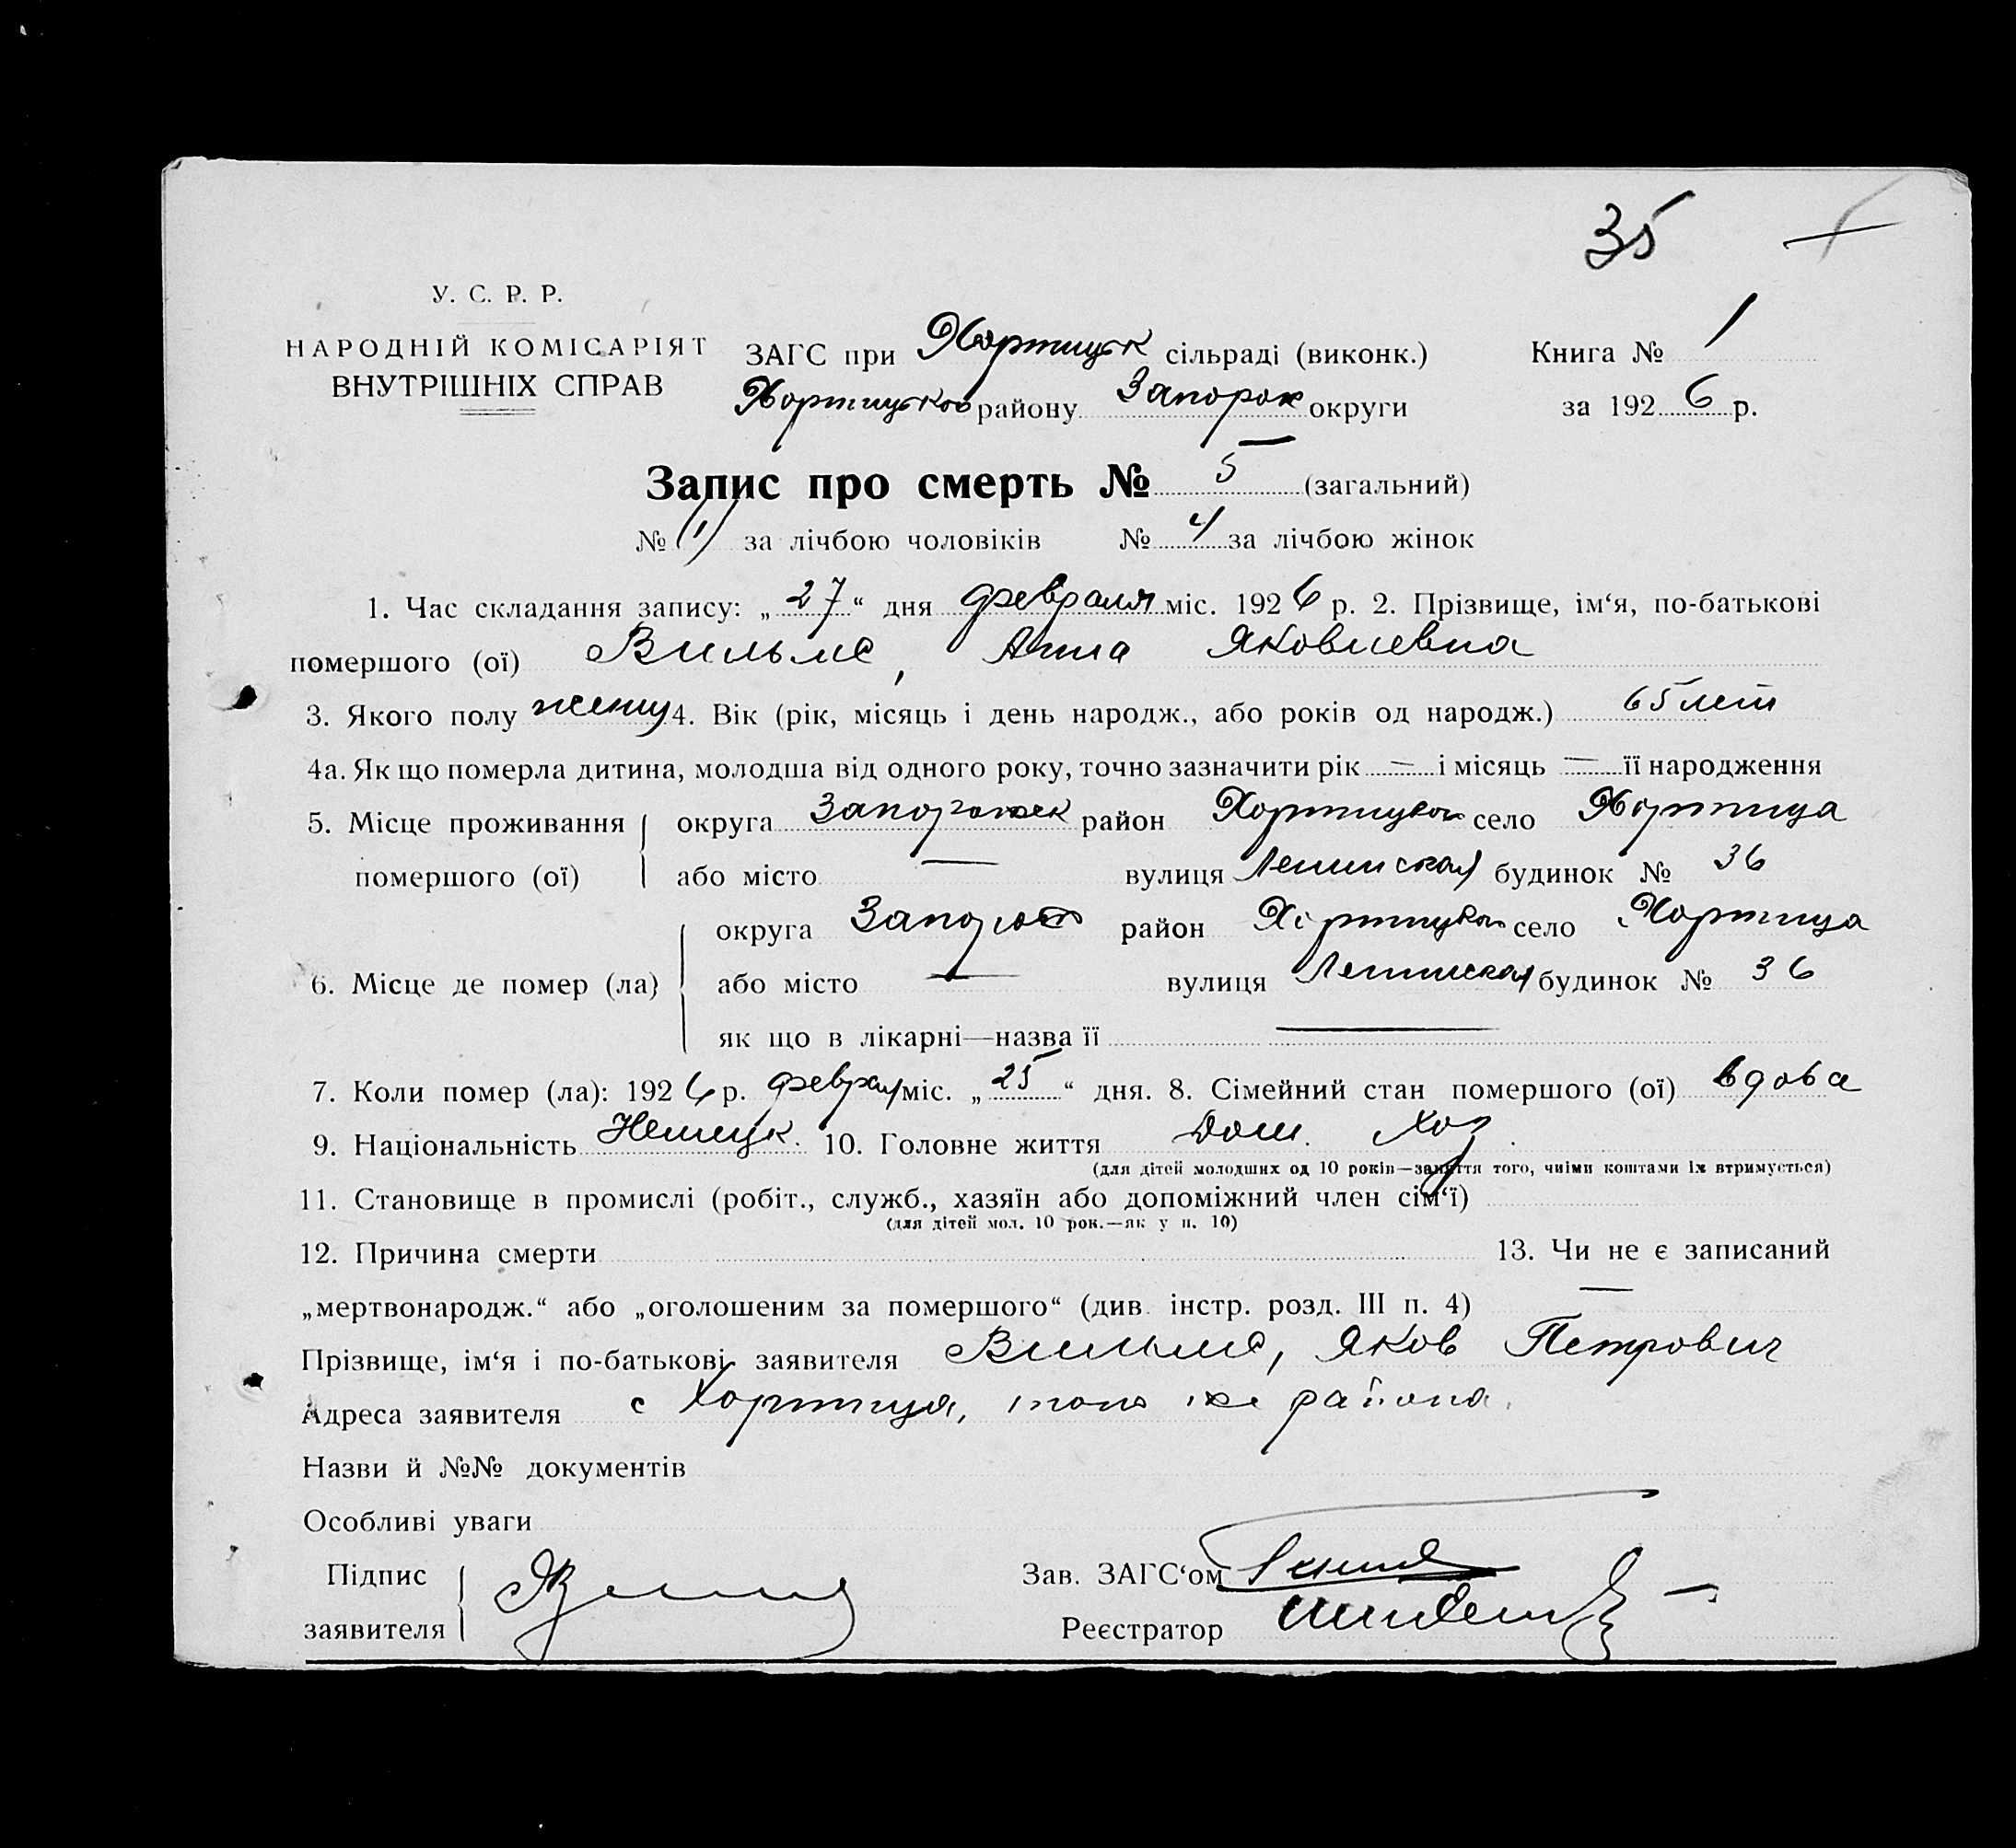 35
У. С. Р. Р.
НАРОДНІЙ КОМІСАРІЯТ
ВНУТРІШНІХ СПРАВ
ЗАГС при Хортицьк сільраді (виконк.)
Книга № 1
Хортицьков району Запорож округи
за 1926 р.
Запис про смерть № 5 (загальний)
№ (1) за лічбою чоловіків № 4 за лічбою жінок
1. Час складання запису: „27“ дня февраля міс. 1926 р. 2. Прізвище, ім‘я, по-батькові
помершого (ої) Вильмс, Анна Яковлевна
3. Якого полу женщ 4. Вік (рік, місяць і день народж., або років од народж.) 65 лет
4а. Як що померла дитина, молодша від одного року, точно зазначити рік — і місяць — її народження
5. Місце проживання округа Запорожск район Хортицкой село Хортица
помершого (ої) або місто — вулиця Ленинская будинок № 36
округа Запорож район Хортицкой село Хортица
6. Місце де помер (ла) або місто — вулиця Ленинская будинок № 36
як що в лікарні—назва її —
7. Коли помер (ла): 1926 р. феврал міс. „25“ дня. 8. Сімейний стан помершого (ої) вдова
9. Національність Немецк. 10. Головне життя Дом. Хоз.
(для дітей молодших од 10 років—заняття того, чиїми коштами їх втримується)
11. Становище в промислі (робіт., служб., хазяїн або допоміжний член сім‘ї)
(для дітей мол. 10 рок.—як у п. 10)
12. Причина смерти 13. Чи не є записаний
„мертвонародж.“ або „оголошеним за помершого“ (див. інстр. розд. III п. 4) —
Прізвище, ім‘я і по-батькові заявителя Вильмс, Яков Петрович
Адреса заявителя с Хортица, того же района.
Назви й №№ документів
Особливі уваги
Підпис
Зав. ЗАГС‘ом
заявителя
Реєстратор